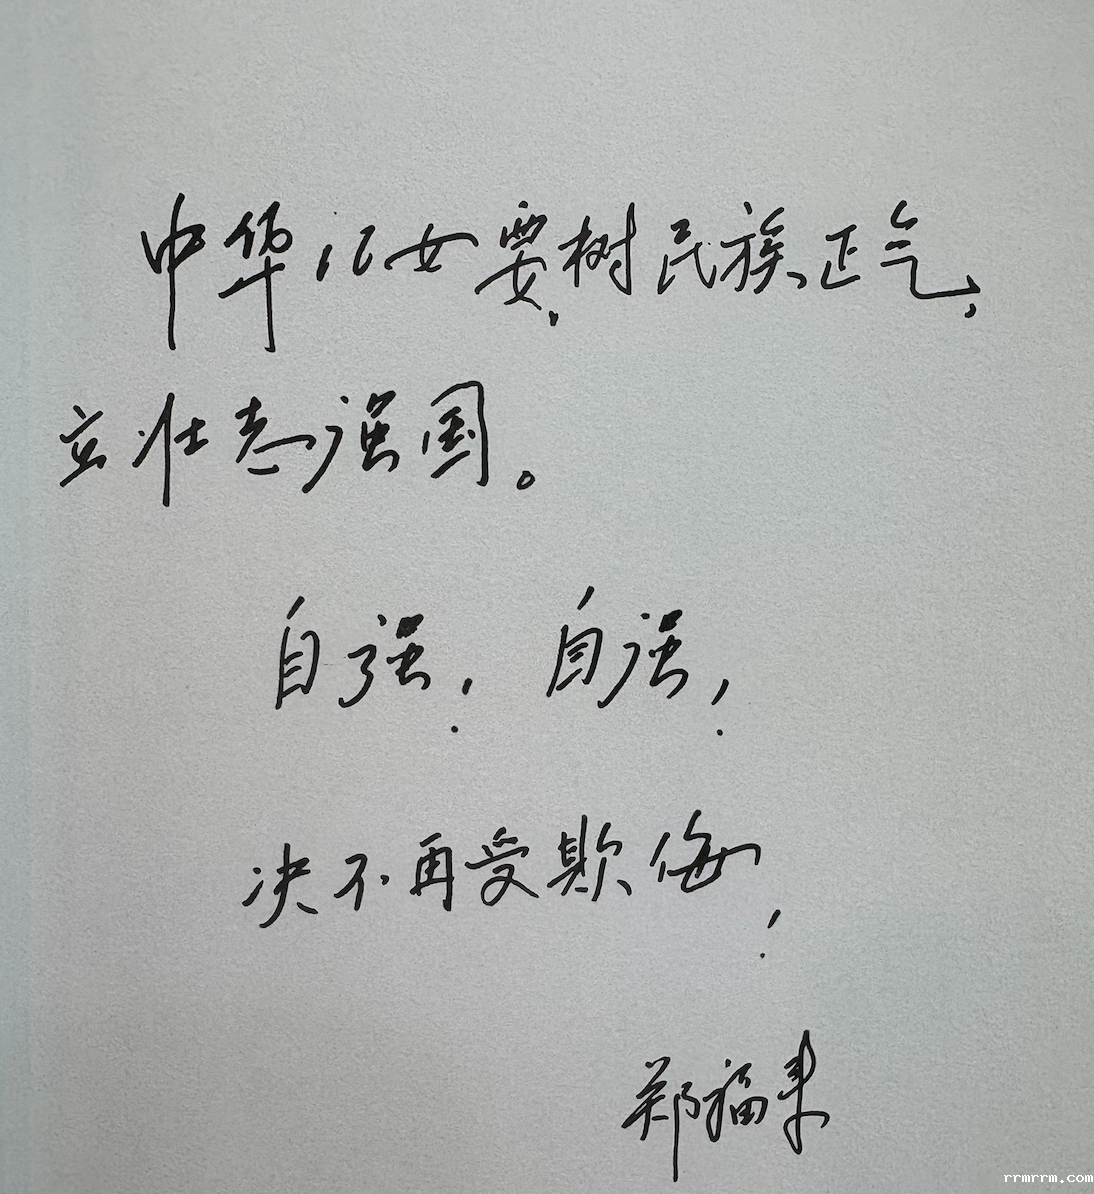 中华儿女要,树民族正气,
立壮志强国。
自强! 自强!
决不再受欺侮!
郑福来
rrmrrm.com